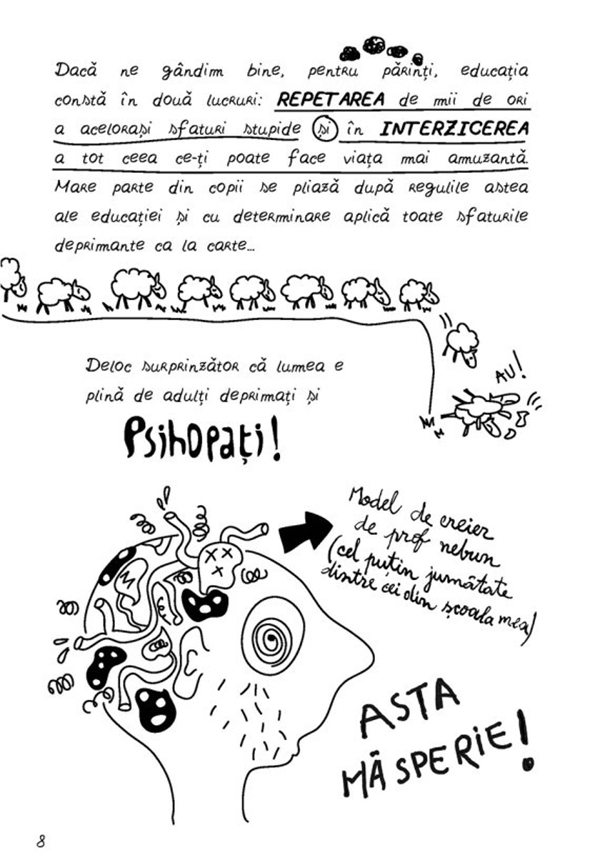 Dacă ne gândim bine, pentru părinți, educația
constă în două lucruri: REPETAREA de mii de ori
a acelorași sfaturi stupide și în INTERZICEREA
a tot ceea ce-ți poate face viața mai amuzantă.
Mare parte din copii se pliază după regulile astea
ale educației și cu determinare aplică toate sfaturile
deprimante ca la carte...
AU!
Deloc surprinzător că lumea e
plină de adulți deprimați și
Psihopați!
Model de creier
de prof nebun
(cel puțin jumătate
dintre cei din școala mea)
ASTA
MĂ SPERIE!
8